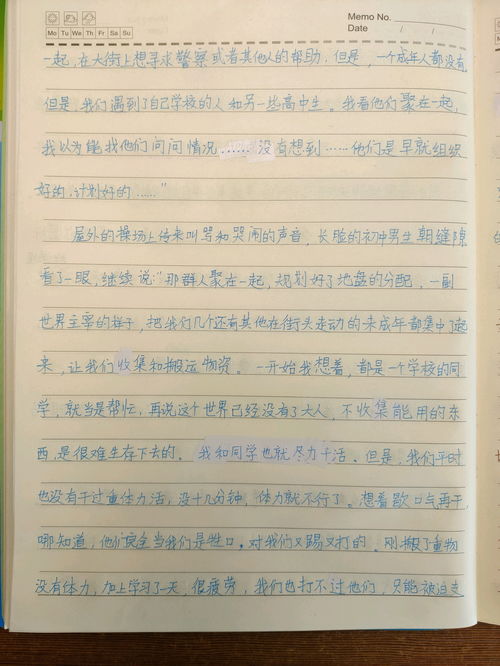 Memo No.
Mo Tu We Th Fr Sa Su
Date / /
一起,在大街上想寻求警察或者其他人的帮助,但是,一个成年人都没有,
但是,我们遇到了自己学校的人和另一些高中生。我看他们聚在一起,
我以为能找他们问问情况……没有想到……他们是早就组织
好的,计划好的……"
屋外的操场上传来叫骂和哭闹的声音,长脸的初中男生朝缝隙
看了一眼,继续说:"那群人聚在一起,规划好了地盘的分配,一副
世界主宰的样子,把我们几个还有其他在街头走动的未成年都集中了起
来,让我们收集和搬运物资。一开始我想着,都是一个学校的同
学,就当是帮忙,再说这个世界已经没有了大人,不收集能用的东
西,是很难生存下去的。我和同学也就尽力干活。但是,我们平时
也没有干过重体力活,没十几分钟,体力就不行了。想着歇口气再干,
哪知道,他们完全当我们是牲口,对我们又踢又打的。刚搬了重物
没有体力,加上学习了一天,很疲劳,我们也打不过他们,只能被迫支